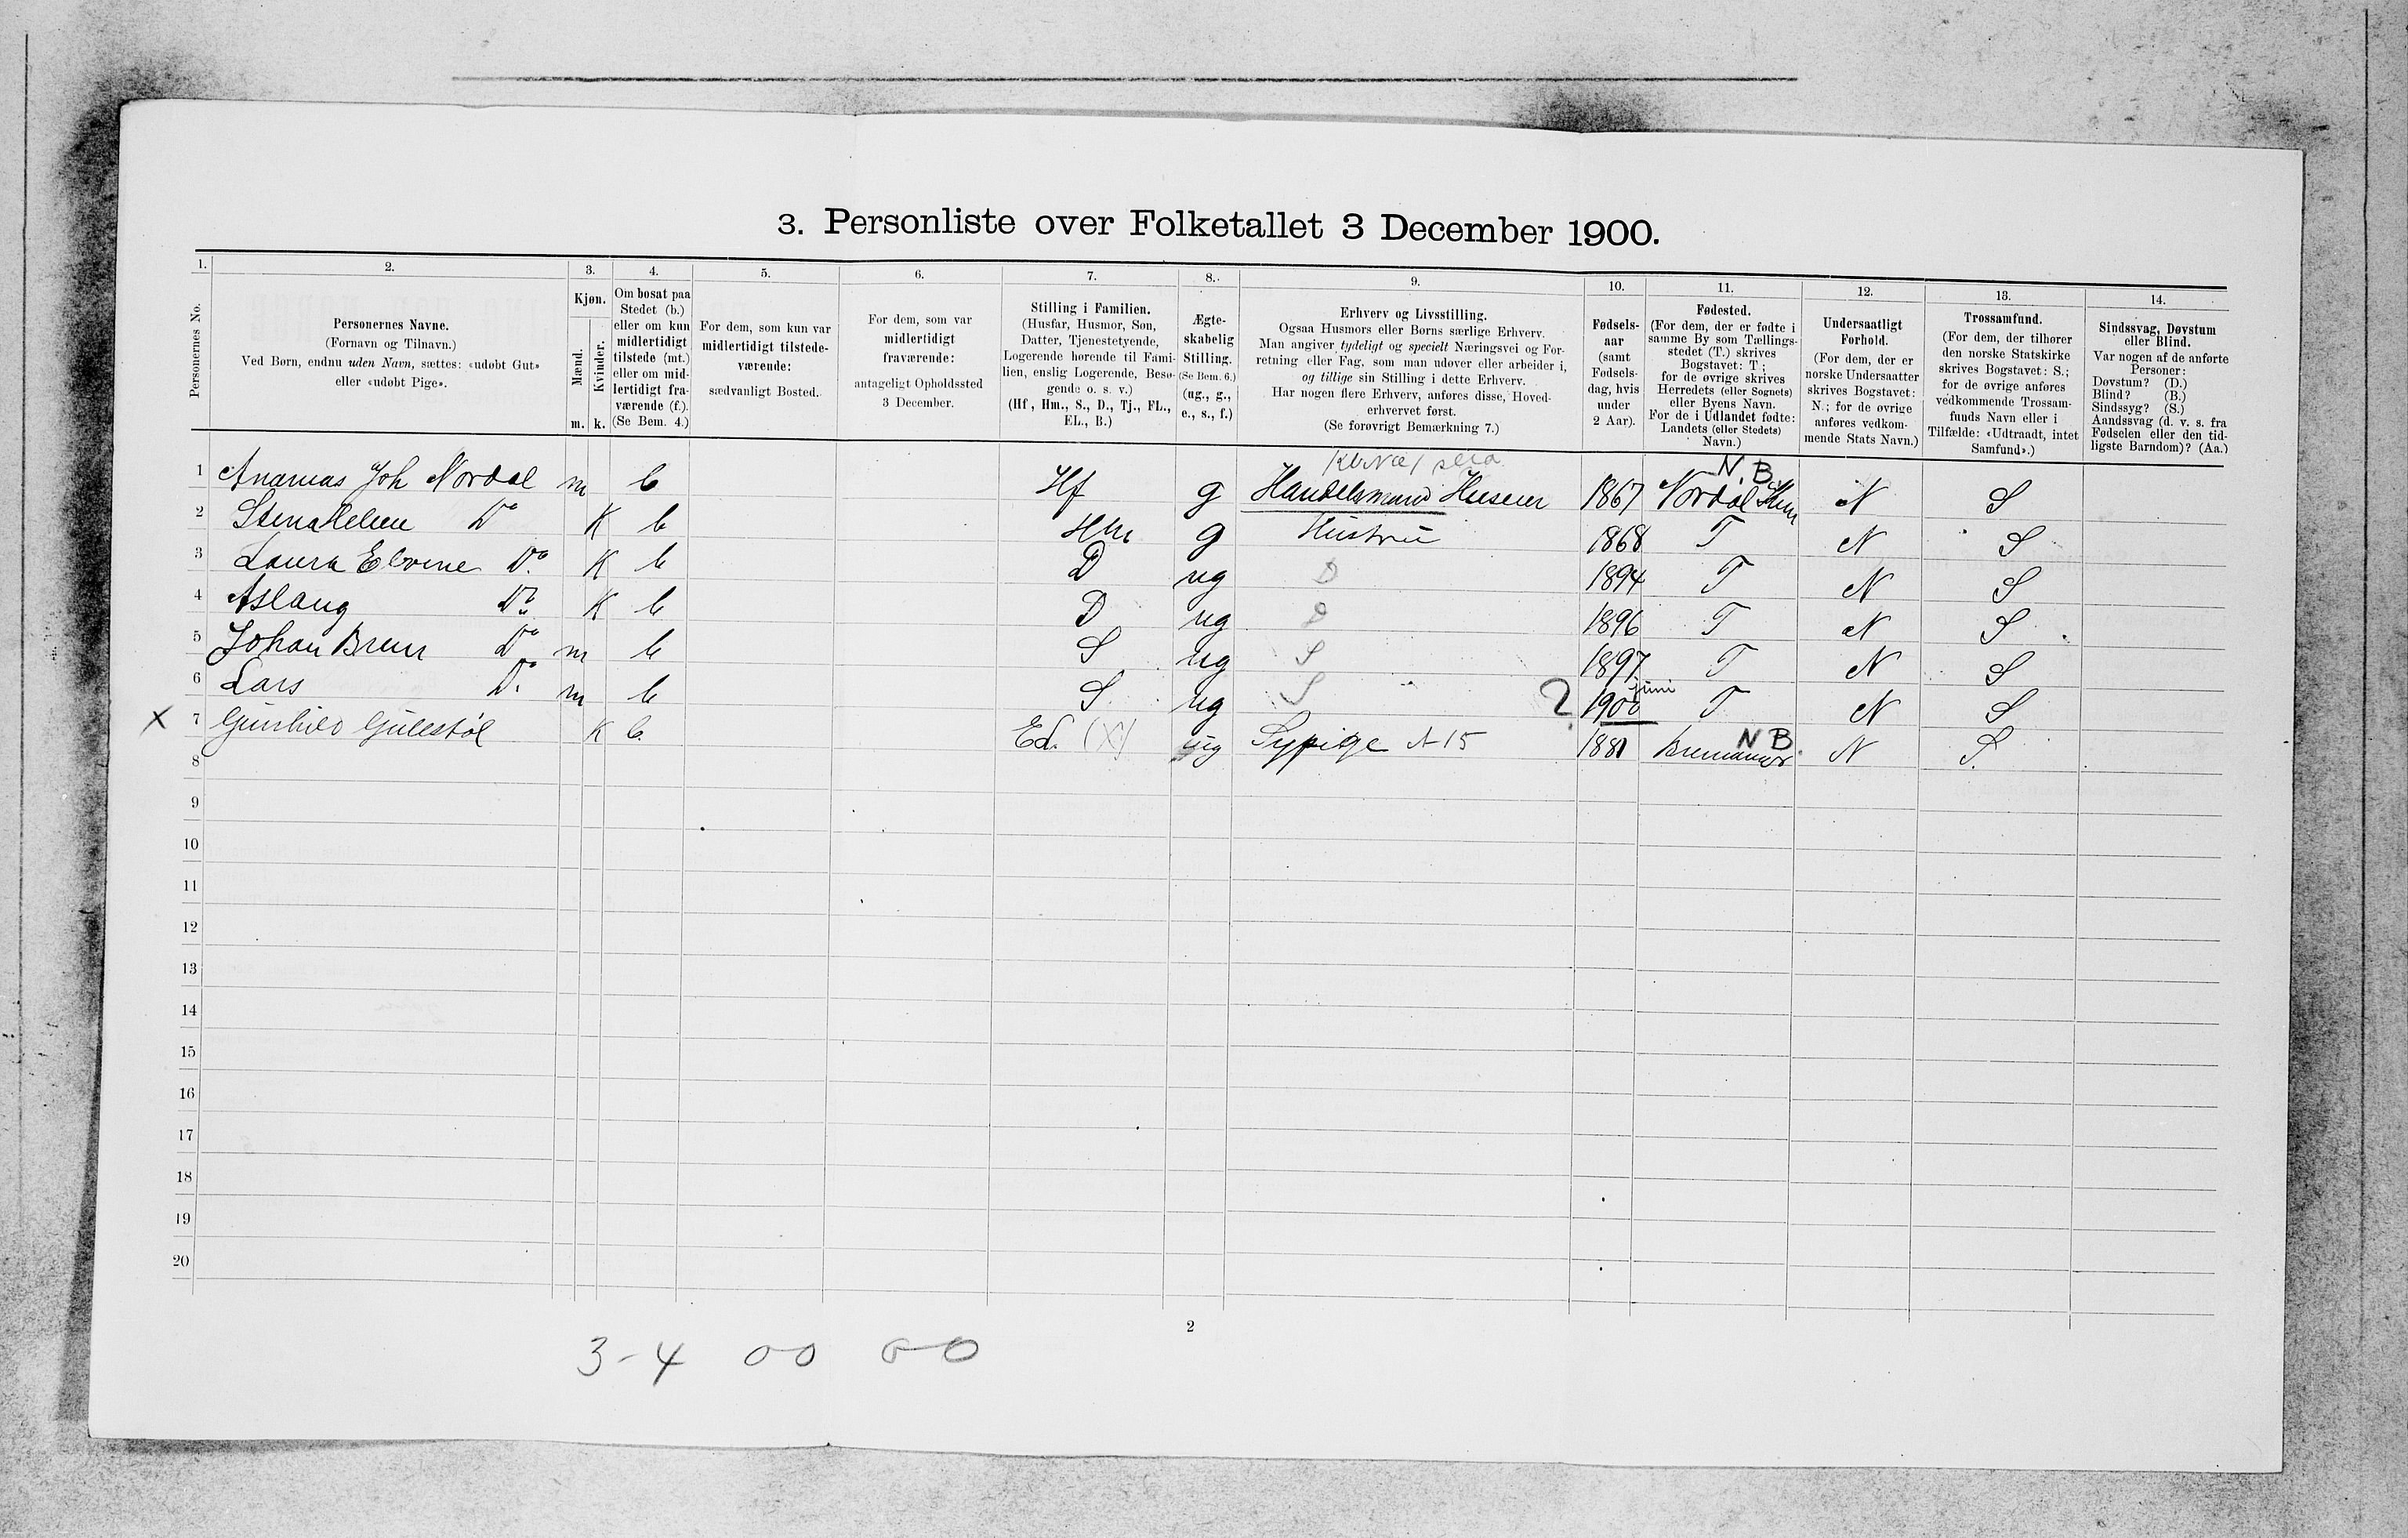 3. Personliste over Folketallet 3 December 1900.
1. 2. 3. 4. 5. 6. 7. 8. 9. 10. 11. 12. 13. 14.
Personernes No.
Personernes Navne.
(Fornavn og Tilnavn.)
Ved Børn, endnu uden Navn, sættes: «udøbt Gut»
eller «udøbt Pige».
Kjøn.
Mænd.
Kvinder.
m. k.
Om bosat paa
Stedet (b.)
eller om kun
midlertidigt
tilstede (mt.)
eller om mid-
lertidigt fra-
værende (f.).
(Se Bem. 4.)
For dem, som kun var
midlertidigt tilstede-
værende:
sædvanligt Bosted.
For dem, som var
midlertidigt
fraværende:
antageligt Opholdssted
3 December.
Stilling i Familien.
(Husfar, Husmor, Søn,
Datter, Tjenestetyende,
Logerende hørende til Fami-
lien, enslig Logerende, Besø-
gende o. s. v.)
(Hf., Hm., S., D., Tj., FL.,
EL., B.)
Ægte-
skabelig
Stilling.
(Se Bem. 6.)
(ug., g.,
e., s., f.)
Erhverv og Livsstilling.
Ogsaa Husmors eller Børns særlige Erhverv.
Man angiver tydeligt og specielt Næringsvei og For-
retning eller Fag, som man udøver eller arbeider i,
og tillige sin Stilling i dette Erhverv.
Har nogen flere Erhverv, anføres disse, Hoved-
erhvervet først.
(Se forøvrigt Bemærkning 7.)
Fødsels-
aar
(samt
Fødsels-
dag, hvis
under
2 Aar).
Fødested.
(For dem, der er fødte i
samme By som Tællings-
stedet (T.) skrives
Bogstavet: T;
for de øvrige skrives
Herredets (eller Sognets)
eller Byens Navn.
For de i Udlandet fødte:
Landets (eller Stedets)
Navn.)
Undersaatligt
Forhold.
(For dem, der er
norske Undersaatter
skrives Bogstavet:
N.; for de øvrige
anføres vedkom-
mende Stats Navn.)
Trossamfund.
(For dem, der tilhører
den norske Statskirke
skrives Bogstavet: S.;
for de øvrige anføres
vedkommende Trossam-
funds Navn eller i
Tilfælde: «Udtraadt, intet
Samfund».)
Sindssvag, Døvstum
eller Blind.
Var nogen af de anførte
Personer:
Døvstum? (D.)
Blind? (B.)
Sindssyg? (S.)
Aandssvag (d. v. s. fra
Fødselen eller den tid-
ligste Barndom)? (Aa.)
N. B.
1 Ananias Joh Nordal m b Hf g Handelsmand 1867 Nordal N S
2 Stina Helene Do K b Hm g Hustru 1868 T N S
3 Laura Elvine Do. K b D ug D 1894 T N S
4 Aslaug Do. K b D ug D 1896 T N S
5 Johan Brun Do m b S ug S 1897 T N S
6 Lars Do. m b S ug S ? 1900 juni T N S
N B.
x 7 Gunhild Gullestøl K b. El. (X) ug Sypige A 15 1881 Bremanger N S.
8
9
10
11
12
13
14
15
16
17
18
19
20
2
3-4 00 00